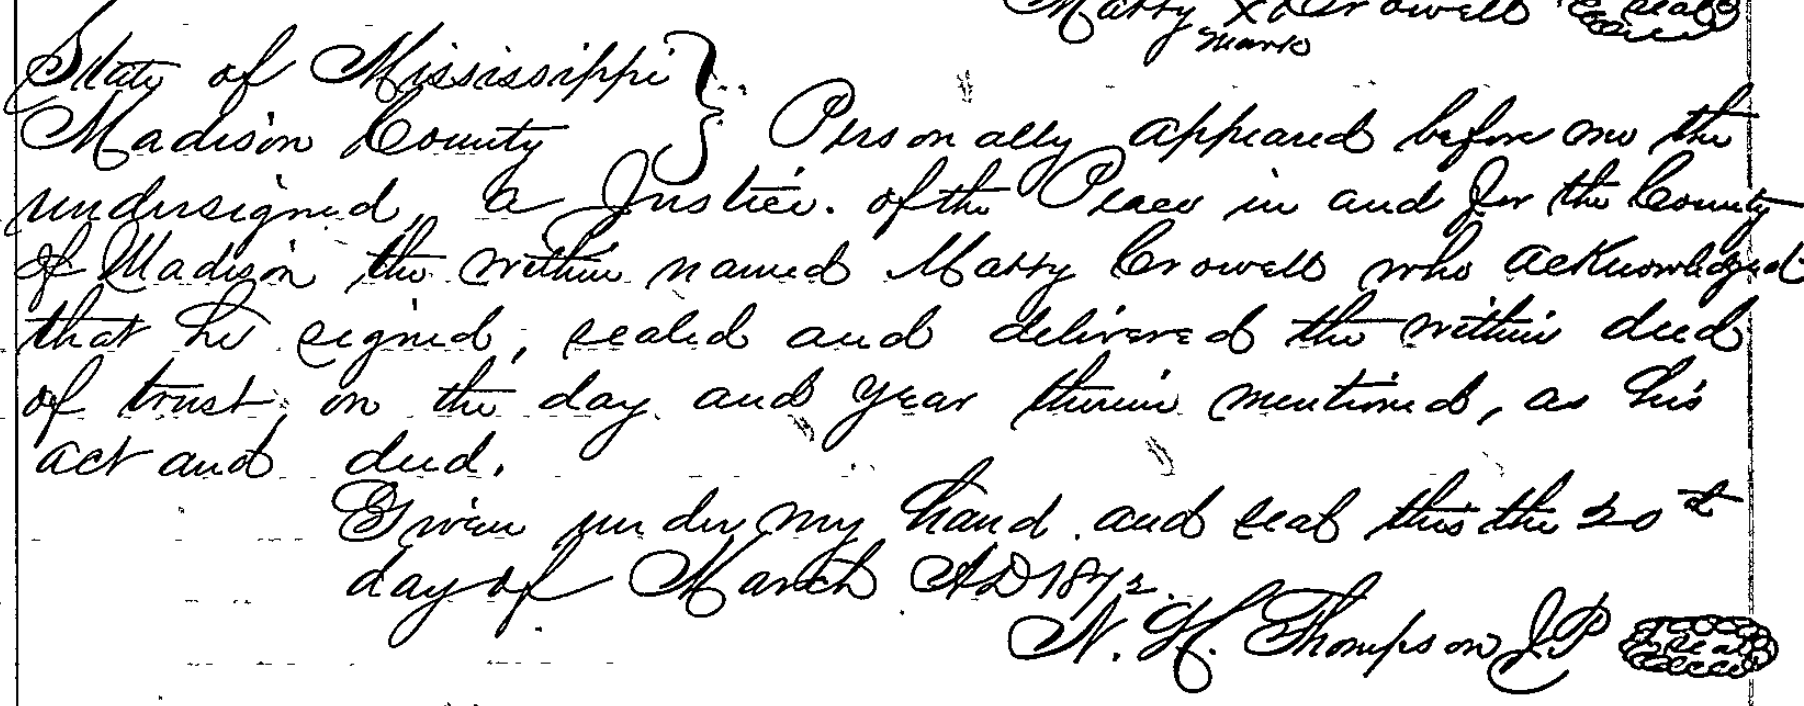 Matty X Crowell seal
mark
State of Mississippi
Madison County } Personally appeared before me the
undersigned, a Justice. of the Peace in and for the County
of Madison the within named Matty Crowell who acknowledged
that he signed, sealed and delivered the within deed
of trust, on the day and year therein mentioned, as his
act and deed.
Given under my hand and seal this the 20th
day of March AD 1872.
N. H. Thompson J.P. seal